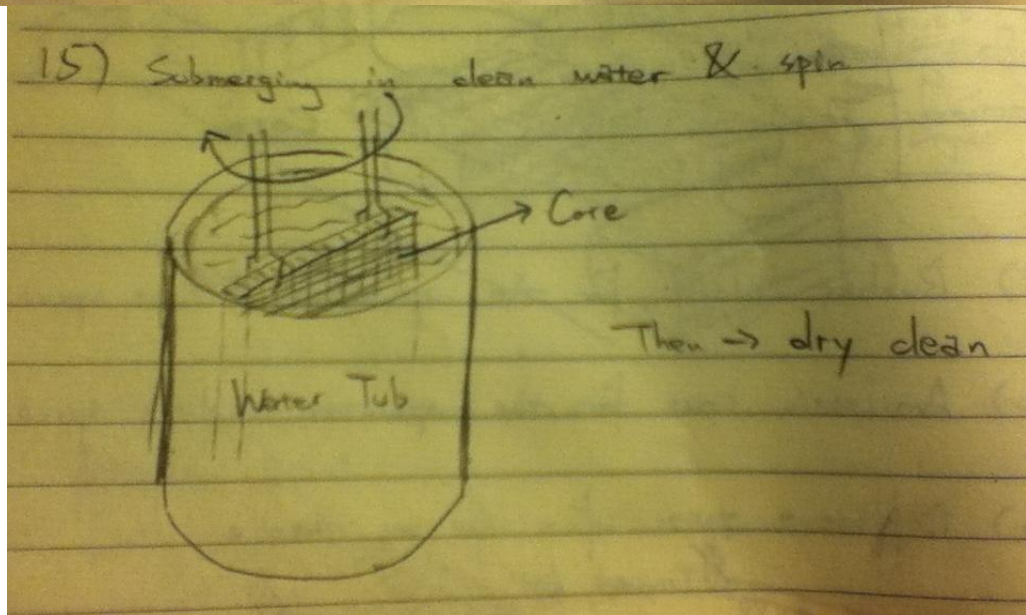 15) Submerging in clean water & spin
Core
Then → dry clean
Water Tub